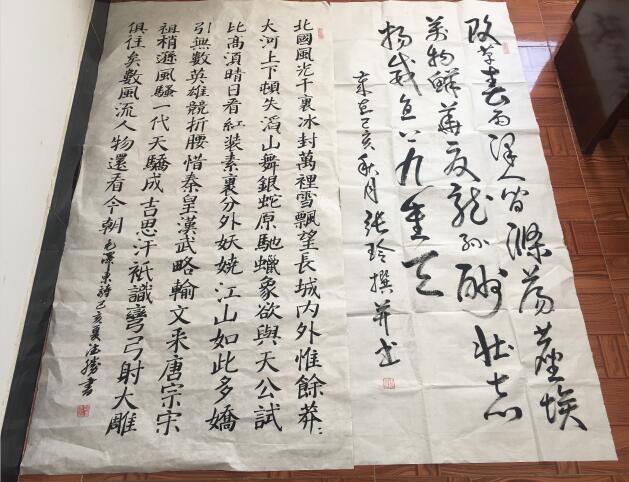 改革春雨澤人間滌蕩塵埃
萬物鮮華夏龍孫酬壯志
揚威直上九重天
歲在己亥秋月張玲撰并书
北國風光千裏冰封萬裡雪飄望長城内外惟餘莽:
大河上下頓失滔山舞銀蛇原馳蠟象欲與天公試
比高須晴日看紅装素裹分外妖娆江山如此多嬌
引無數英雄競折腰惜秦皇漢武略輸文采唐宗宋
祖稍遜風騷一代天驕成吉思汗衹識彎弓射大雕
俱往矣數風流人物還看今朝毛澤東詩己亥夏書